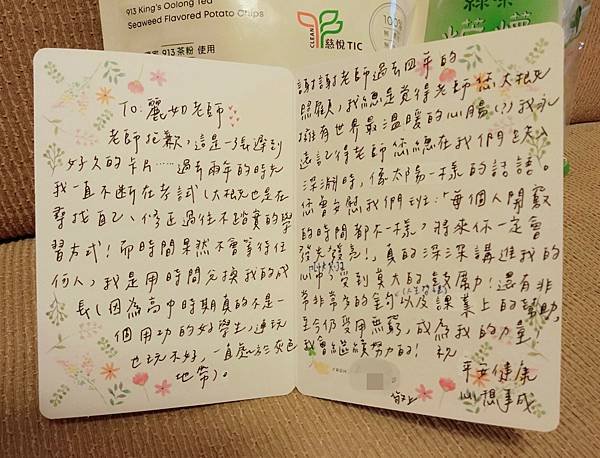 913 King's Oolong Tea
Seaweed Flavored Potato Chips
913茶粉 使用
CLEAN
慈悅TIC
100%
TO: 麗如老師
老師抱歉,這是一張遲到
好久的卡片……過去兩年的時光
我一直不斷在考試(大概也是在
尋找自己、修正過往不踏實的學
習方式!而時間果然不會等待任
何人,我是用時間兌換我的成
長(因為高中時期真的不是一
個用功的好學生,連玩
也玩不好,一直處於灰色
地帶)。
謝謝老師過去四年的
照顧,我總是覺得老師您大概
擁有世界最溫暖的心腸(?)我永
遠記得老師您總在我們失入
深淵時,像太陽一樣的話語。
您會安慰我們班:「每個人開竅
的時間都不一樣,將來你一定會
發光發亮!」真的深深講進我的
心中,受到莫大的鼓勵!還有非
常非常多的金句以及課業上的幫助,
至今仍受用無窮,成為我的力量!
我會繼續努力的!祝
平安健康
心想事成
敬上